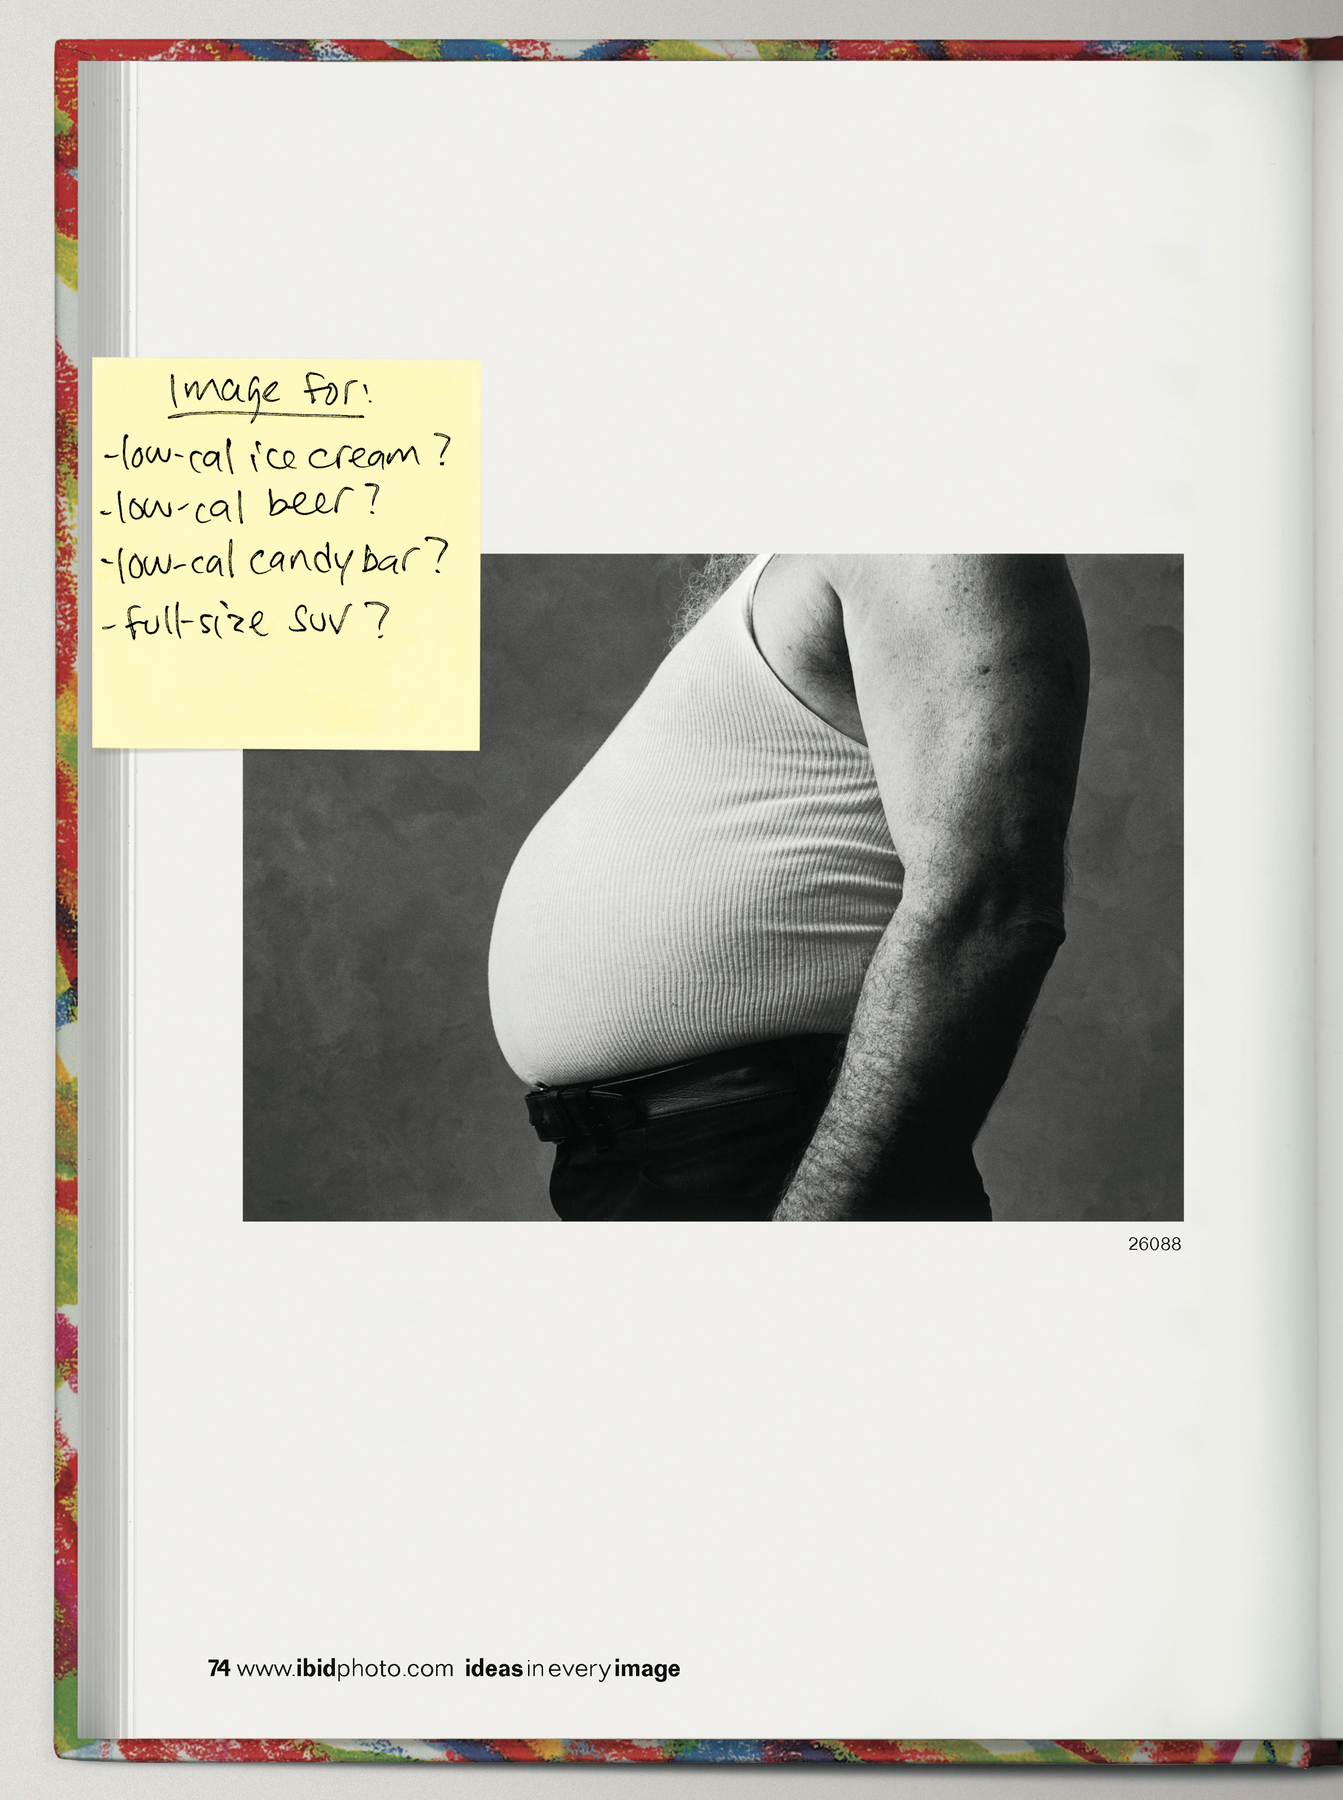 Image for:
-low-cal ice cream?
-low-cal beer?
-low-cal candy bar?
-full-size SUV?
26088
74 www.ibidphoto.com ideas in every image